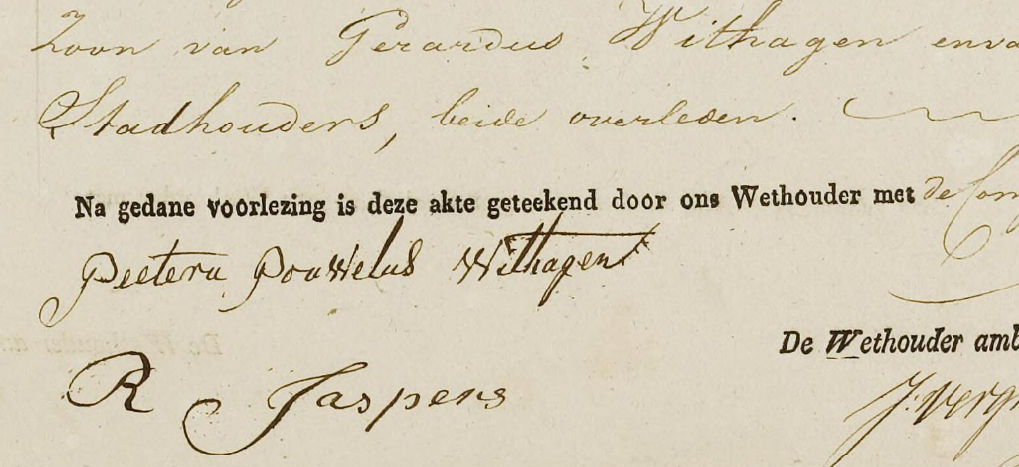 Zoon van Gerardus Withagen en va
Stadhouders, beide overleden.
Na gedane voorlezing is deze akte geteekend door ons Wethouder met de Com
Peeteru Pouwelus Withagen
De Wethouder amb
R Jaspers
J. Verg